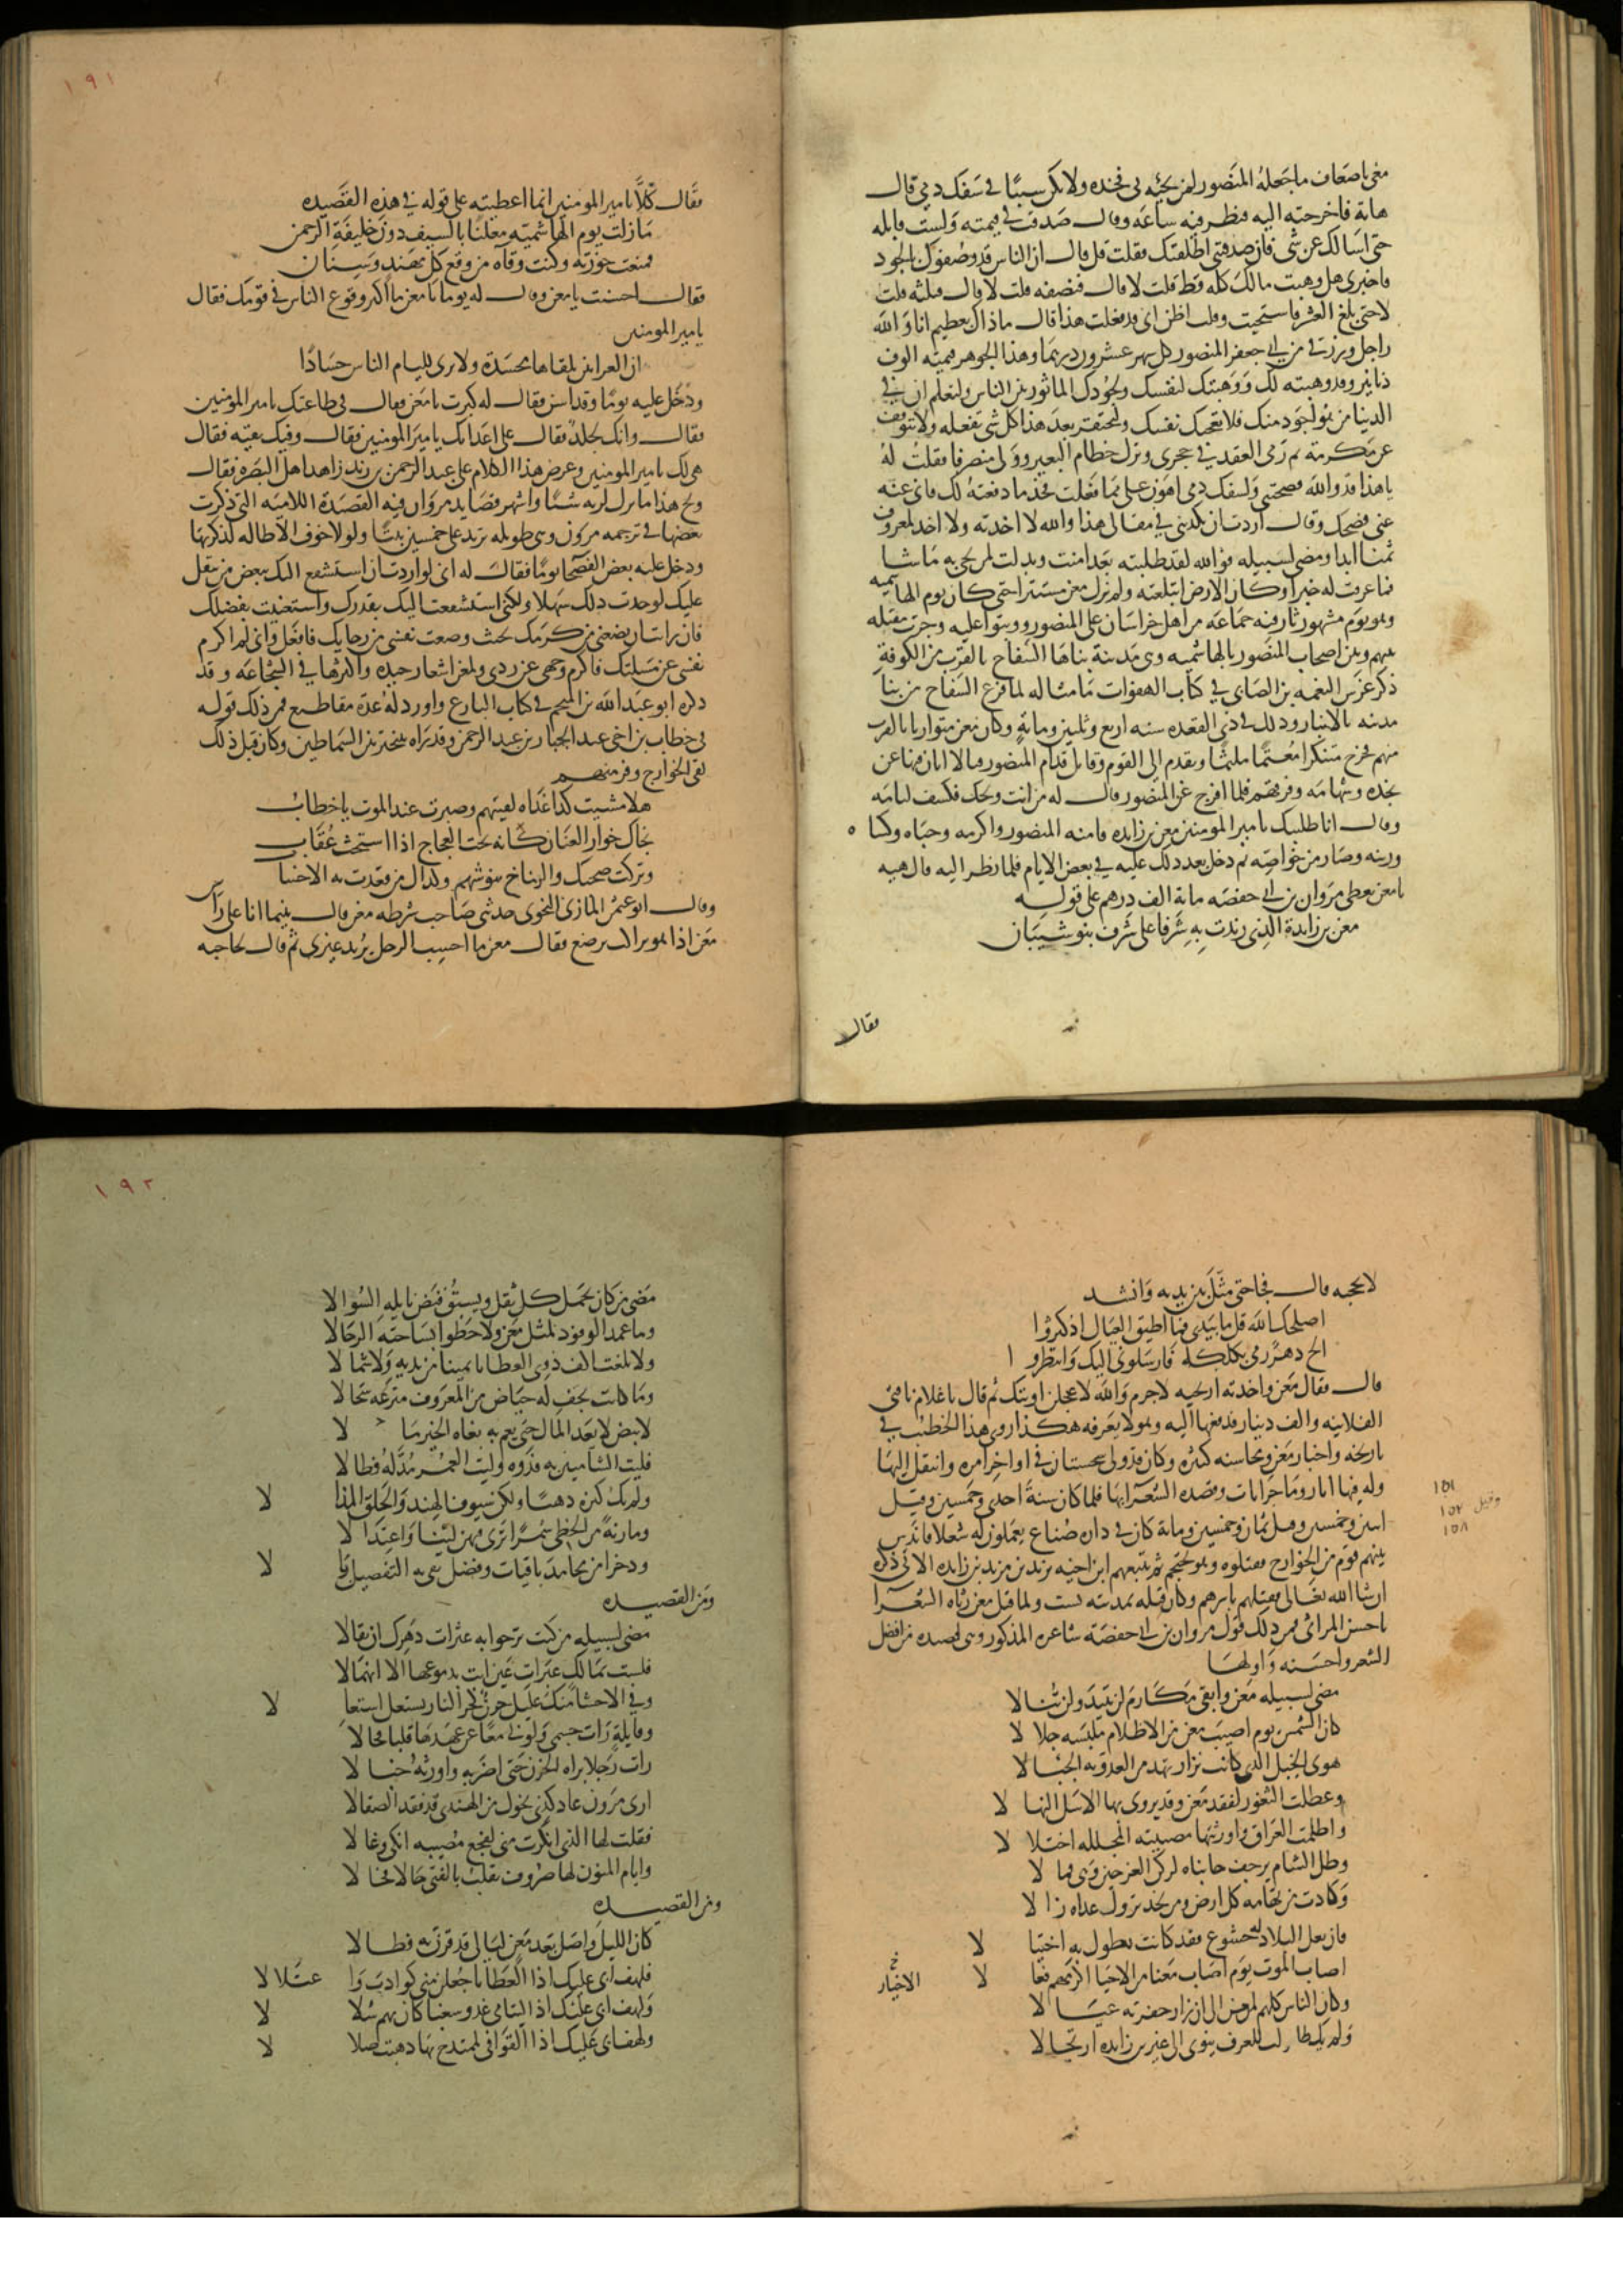 معي باضعاف ما جعله المنصور لمن يجيه بي فخذه ولا تكن سببا في سفك دمي قال
هاته فاخرجته اليه فنظر فيه ساعة وقال صدقت في قيمته ولست قابله
حتى اسالك عن شي فان صدقتني اطلقتك فقلت قل قال ان الناس قد وصفوك بالجود
فاخبرني هل وهبت مالك كله قط قلت لا قال فنصفه قلت لا قال فثلثه قلت
لا حتى بلغ العشر فاستحييت وقلت اظن اني قد فعلت هذا قال ما ذاك بعظيم انا والله
راجل ورزقي من ابي جعفر المنصور كل شهر عشرون درهما وهذا الجوهر قيمته الوف
دنانير وقد وهبته لك ووهبتك لنفسك ولجودك الماثور بين الناس ولتعلم ان في
الدنيا من هو اجود منك فلا تعجبك نفسك ولتحتقر بعد هذا كل شي تفعله ولا تتوقف
عن مكرمة ثم رمى العقد في حجري وترك خطام البعير وولى منصرفا فقلت له
يا هذا قد والله فضحتني ولسفك دمي اهون علي مما فعلت فخذ ما دفعته لك فاني عنه
غني فضحك وقال اردت ان تكذبني في مقالي هذا والله لا اخذته ولا اخذ لمعروف
ثمنا ابدا ومضى لسبيله فوالله لقد طلبته بعد ان امنت وبذلت لمن يجي به ما شا
فما عرفت له خبرا وكان الارض ابتلعته ولم يزل معن مستترا حتى كان يوم الهاشميه
وهو يوم مشهور ثار فيه جماعة من اهل خراسان على المنصور ووثبوا عليه وجرت مقتله
بينهم وبين اصحاب المنصور بالهاشميه وهي مدينة بناها السفاح بالقرب من الكوفة
ذكر غرس النعمه بن الصابي في كتاب الهفوات ما مثاله لما فرغ السفاح من بنا
مدينه بالانبار وذلك في ذي القعده سنه اربع وثلثين وماية وكان معن متواريا بالقرب
منهم فخرج متنكرا معتما ملثما وتقدم الى القوم وقاتل قدام المنصور قتالا ابان فيه عن
نجده وشهامه وفرقهم فلما افرج عن المنصور قال له من انت ويحك فكشف لثامه
وقال انا طلبتك يا امير المومنين معن بن زايده فامنه المنصور واكرمه وحباه وكسا ه
ورتبه وصار من خواصه ثم دخل بعد ذلك عليه في بعض الايام فلما نظر اليه قال هيه
يا معن تعطي مروان بن ابي حفصه ماية الف درهم على قوله
معن بن زايدة الذي زيدت به شرفا على شرف بنو شيبان
فقال
١٩١
فقال كلا يا امير المومنين انما اعطيته على قوله في هذه القصيده
ما زلت يوم الهاشميه معلنا بالسيف دون خليفة الرحمن
فمنعت حوزته وكنت وقاه من وقع كل مهند وسنان
فقال احسنت يا معن وقال له يوما يا معن ما اكثر وقوع الناس في قومك فقال
يا امير المومنين
ان العرانين تلقاها محسدة ولا ترى لليام الناس حسادا
ودخل عليه يوما وقد اسن فقال له كبرت يا معن فقال في طاعتك يا امير المومنين
فقال وانك لجلد فقال على اعدايك يا امير المومنين فقال وفيك بقيه فقال
هي لك يا امير المومنين وعرض هذا الكلام على عبد الرحمن بن زيد زاهد اهل البصره فقال
ويح هذا ما ترك لربه شيا واشهر قصايد مروان فيه القصيدة اللاميه التي ذكرت
بعضها في ترجمه مروان وهي طويله تزيد على خمسين بيتا ولولا خوف الاطاله لذكرتها
ودخل عليه بعض الفصحا يوما فقال له اني لو اردت ان استشفع اليك ببعض من يثقل
عليك لوجدت ذلك سهلا ولكني استشفعت اليك بقدرك واستعنيت بفضلك
فان رايت ان تضعني من كرمك بحيث وضعت نفسي من رجايك فافعل واني لم اكرم
نفسي عن مسلتك فاكرم وجهي عن ردي ولمعن اشعار جيده واكثرها في الشجاعه وقد
ذكره ابو عبد الله بن المنجم في كتاب البارع واورد له عدة مقاطيع فمن ذلك قوله
في خطاب بن اخي عبد الجبار بن عبد الرحمن وقد راه يتبختر بين السماطين وكان قبل ذلك
لقي الخوارج وفر منهم
هلا مشيت كذا غداه لقيتهم وصبرت عند الموت يا خطاب
نجاك خوار العنان كانه تحت العجاج اذا استحث عقاب
وتركت صحبك والرماح تنوشهم وكذاك من قعدت به الاحساب
وقال ابو عثمن المازني النحوي حدثني صاحب شرطه معن قال بينما انا على راس
معن اذا هو براكب يوضع فقال معن ما احسب الرجل يريد غيري ثم قال لحاجبه
لا تحجبه قال فجا حتى مثل بين يديه وانشد
اصلحك الله قل ما بيدي فما اطيق العيال اذ كثروا
الح دهر رمى بكلكله فارسلوني اليك وانتظروا
قال فقال معن واخذته اريحيه لا جرم والله لاعجلن اوبتك ثم قال يا غلام ناقتي
الفلانيه والف دينار فدفعها اليه وهو لا يعرفه هكذا روى هذا الخطيب في
تاريخه واخبار معن ومحاسنه كثيره وكان قد ولي سجستان في اواخر امره وانتقل اليها
وله فيها اثار وماجرايات وقصده الشعرا بها فلما كان سنة احدى وخمسين وقيل
١٥١
وقيل ١٥٢
١٥٨
اثنين وخمسين وقيل ثمان وخمسين وماية كان في داره صناع يعملون له شغلا فاندس
بينهم قوم من الخوارج فقتلوه وهو يحتجم ثم تتبعهم ابن اخيه يزيد بن مزيد بن زايده الاتي ذكره
ان شا الله تعالى فقتلهم باسرهم وكان قتله بمدينه بست ولما قتل معن رثاه الشعرا
باحسن المراثي فمن ذلك قول مروان بن ابي حفصه شاعره المذكور وهي قصيده من افضل
الشعر واحسنه واولها
مضى لسبيله معن وابقى مكارم لن تبيد ولن تنالا
كان الشمس يوم اصيب معن من الاظلام ملبسه جلا لا
هوى الجبل الذي كانت نزار تهد من العدو به الجبا لا
وعطلت الثغور لفقد معن وقد يروى بها الاسل النها لا
واظلمت العراق واورثتها مصيبته المجلله اختلا لا
وظل الشام يرجف جانباه لركن العز حين وهى فما لا
وكادت من تهامه كل ارض ومن نجد تزول غداه زا لا
فان يعل البلاد له خشوع فقد كانت تطول به اختيا لا
اصاب الموت يوم اصاب معنا من الاحيا اكرمهم فعا لا
الاخيار خ
وكان الناس كلهم لمعن الى ان زار حفرته عيا لا
ولم يك طالب للعرف ينوي الى غير بن زايده ارتحالا
١٩٢
مضى من كان يحمل كل ثقل ويسبق فيض نايله السوالا
وما عمد الوفود لمثل معن ولا حطوا بساحته الرحالا
ولا بلغت اكف ذوي العطايا يمينا من يديه ولا شما لا
وما كانت تجف له حياض من المعروف مترعه سجالا
لابيض لا يعد المال حتى يعم به بغاه الخير ما لا
فليت الشامتين به فدوه وليت العمر مد له فطالا
ولم يك كنزه ذهبا ولكن سيوف الهند والحلق المذا لا
ومارنة من الخطي سمرا ترى فيهن لينا واعتدا لا
وذخرا من محامد باقيات وفضل تقى به التفضيل نا لا
ومن القصيده
مضى لسبيله من كنت ترجوا به عثرات دهرك ان تقالا
فلست بمالك عبرات عين ابت بدموعها الا انهمالا
وفي الاحشا منك غليل حزن كحر النار يشتعل اشتعا لا
وقايلة رات جسمي ولوني معا عن عهدها قلبا فحا لا
رات رجلا براه الحزن حتى اضر به واورثه خبا لا
ارى مرون عاد كذي نحول من الهندي قد فقد الصقالا
فقلت لها الذي انكرت مني لفجع مصيبه انكى وغا لا
وايام المنون لها صروف تقلب بالفتى حالا فحا لا
ومن القصيده
كان الليل واصل بعد معن ليالي قد قرن به فطالا
فلهف ابي عليك اذا العطايا جعلن منى كواذب وا عتلا لا
ولهف ابي عليك اذا اليتامى غدو شعثا كان بهم سلا لا
ولهف ابي عليك اذا القوافي لممتدح بها ذهبت ضلا لا